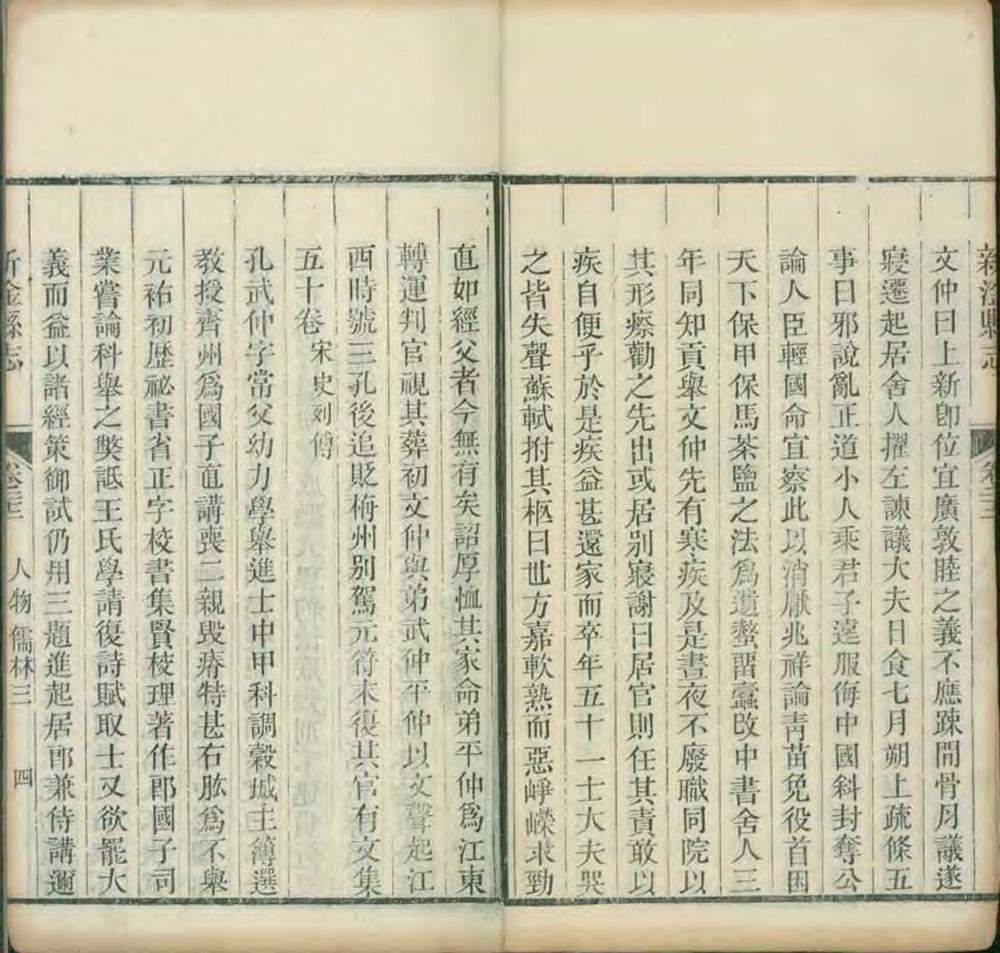 新淦縣志
卷三
文仲曰上新卽位宜廣敦睦之義不應疎間骨月議遂
寢遷起居舍人擢左諫議大夫日食七月朔上疏條五
事曰邪說亂正道小人乘君子遠服侮中國科封奪公
論人臣輕國命宜察此以消厭兆祥論青苗免役首困
天下保甲保馬茶鹽之法爲遺螫畱蠹改中書舍人三
年同知貢舉文仲先有寒疾及是晝夜不廢職同院以
其形瘵勸之先出或居別寢謝曰居官則任其責敢以
疾自便乎於是疾益甚還家而卒年五十一士大夫哭
之皆失聲蘇軾拊其柩曰世方嘉軟熟而惡崢嶸求勁
直如經父者今無有矣詔厚恤其家命弟平仲爲江東
轉運判官視其葬初文仲與弟武仲平仲以文聲起江
西時號三孔後追貶梅州別駕元符末復其官有文集
五十卷宋史列傳
孔武仲字常父幼力學舉進士中甲科調穀城主簿選
教授齊州爲國子直講喪二親毀瘠特甚右肱爲不舉
元祐初歷祕書省正字校書集賢校理著作郎國子司
業嘗論科舉之獘詆王氏學請復詩賦取士又欲罷大
義而益以諸經策御試仍用三題進起居郎兼侍講邇
新淦縣志
人物 儒林三
四